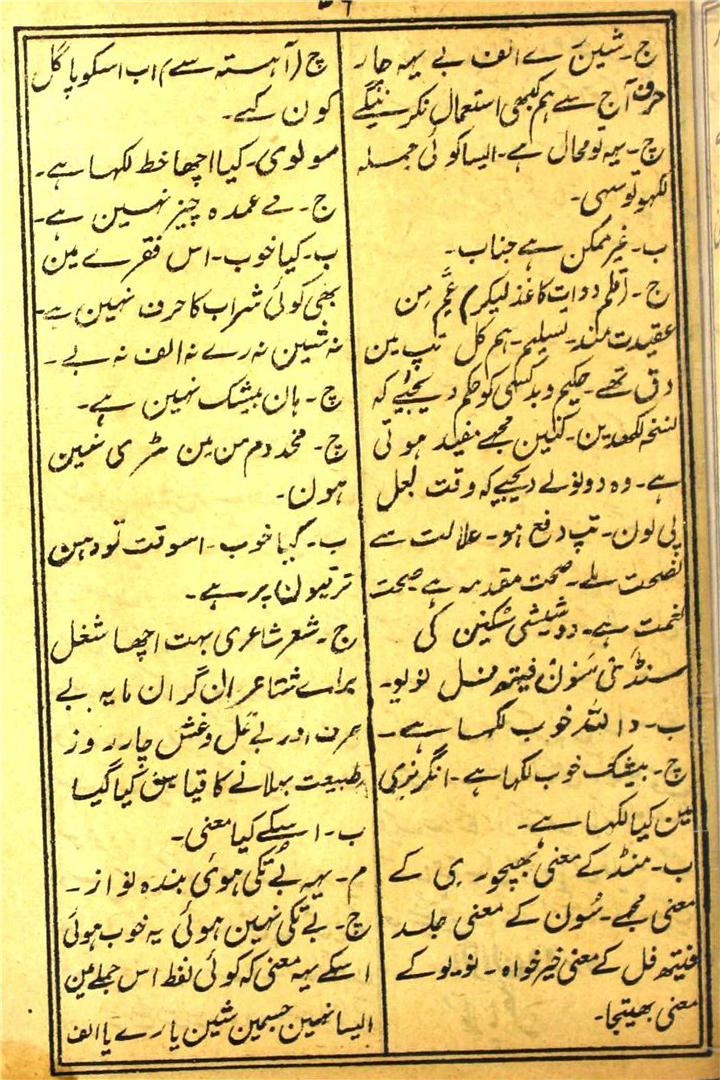 ۳۶
ج۔ شین رے الف بے یہہ چار
حرف آج سے ہم کبھی استعمال نکرینگے
چ۔ یہہ تو محال ہے۔ ایسا کوئی جملہ
لکھو تو سہی۔
ب۔ غیر ممکن ہے جناب۔
ج۔ (قلم دوات کاغذ لیکر) عم من
عقیدت مند۔ تسلیم۔ ہم کل تپ مین
دق تھے۔ حکیم وید کسی کو حکم دیجیے کہ
نسخہ لکھدین۔ کنین مجھے مفید ہوتی
ہے۔ وہ دو تولے دیجیے کہ وقت
پی لون۔ تپ دفع ہو۔ علالت سے
نصحت ملے۔ صحت مقدم ہے صحت
نعمت ہے۔ دو شیشی کنین کی
سنڈ می سون فیتھ فل نویو۔
ب۔ واللہ خوب لکھا ہے۔
چ۔ بیشک خوب لکھا ہے۔ انگریزی
مین کیا لکھا ہے۔
ب۔ سنڈ کے معنی بھیجو۔ می کے
معنی مجھے۔ سون کے معنی جلد
فیتھ فل کے معنی خیر خواہ۔ نویو کے
معنی بھتیجا۔
چ (آہستہ سے) اب اسکو پاگل
کون کہے۔
مولوی۔ کیا اچھا خط لکھا ہے۔
ج۔ مے عمدہ چیز نہین ہے۔
ب۔ کیا خوب۔ اس فقرے مین
بھی کوئی شراب کا حرف نہین ہے۔
نہ شین نہ رے نہ الف نہ بے۔
چ۔ ہان بیشک نہین ہے۔
چ۔ مخدوم من مین سڑی نہین
ہون۔
ب۔ کیا خوب۔ اسوقت تو ذہن
ترقیون پر ہے۔
ج۔ شعر شاعری بہت اچھا شغل
براے شاعران گران مایہ بے
حرف اور بے غل و غش چار روز
طبیعت بہلانے کا قیاسن کیا گیا
ب۔ اسکے کیا معنی۔
م۔ یہہ بے تکی ہوئی بندہ نواز۔
چ۔ بے تکی نہین ہوئی یہ خوب ہوئی
اسکے یہہ معنی کہ کوئی لفظ اس جملے مین
ایسا نہین جسمین شین یا رے یا الف